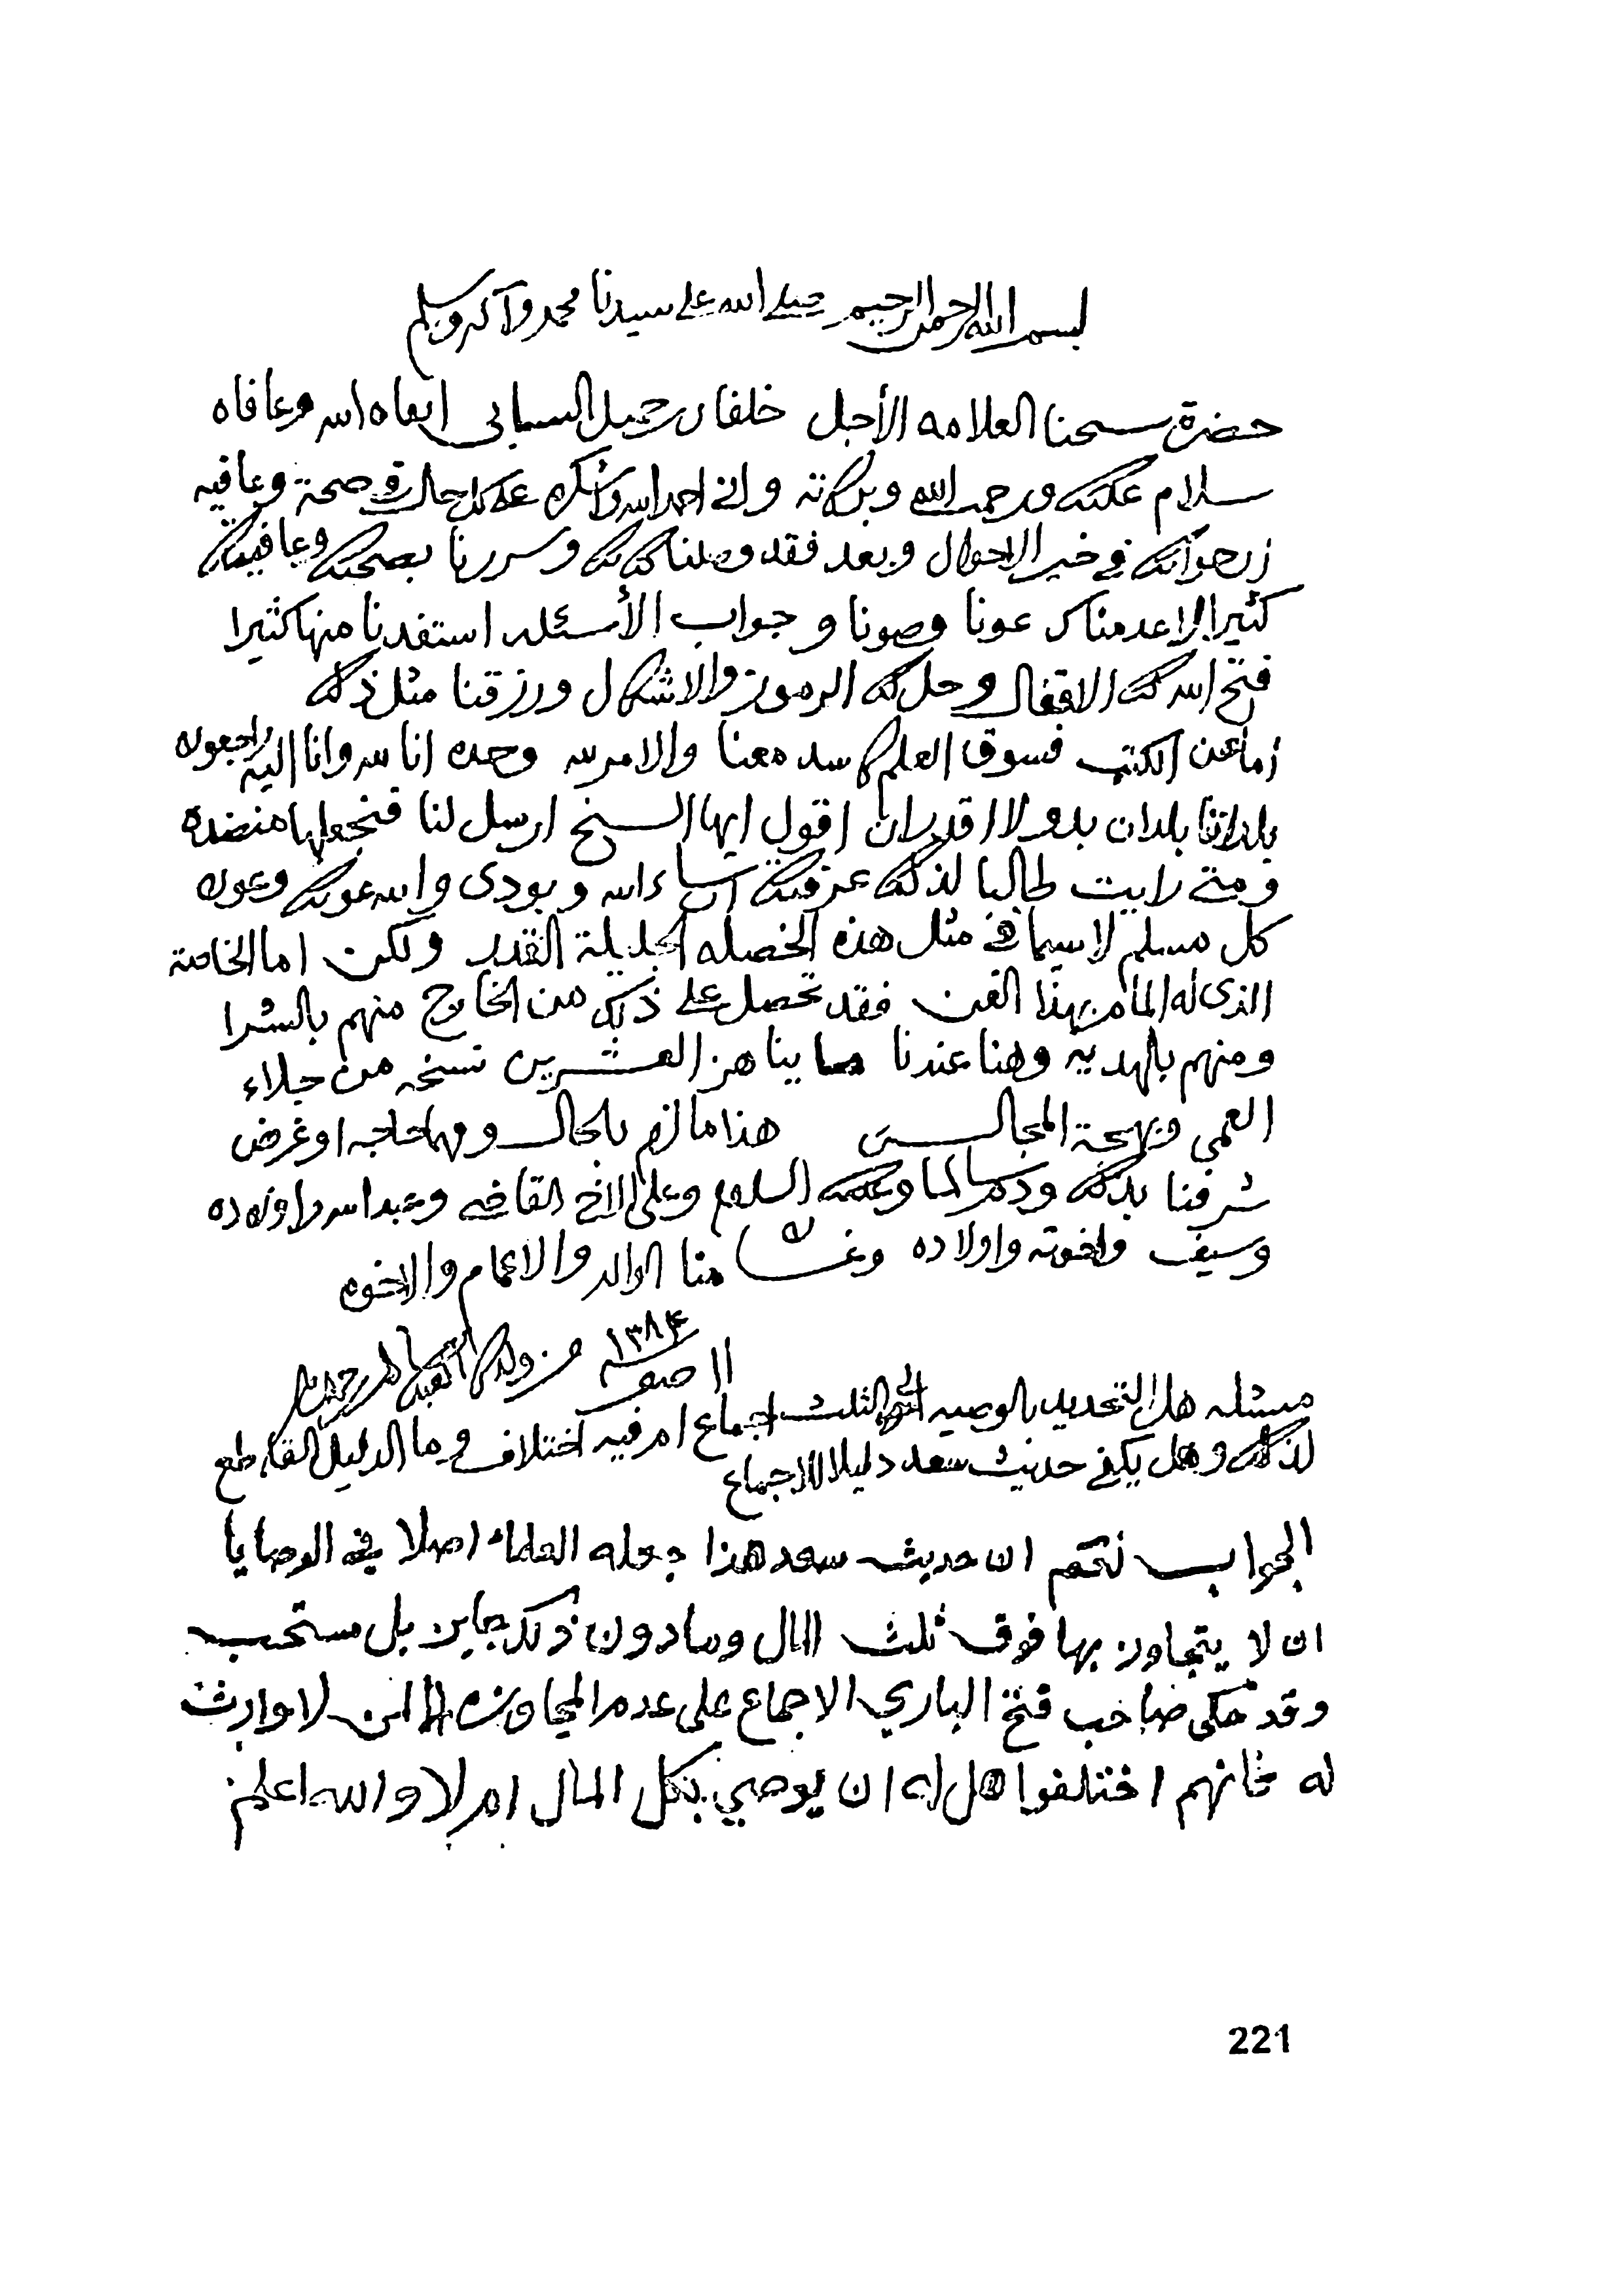 بسم الله الرحمن الرحيم صلى الله على سيدنا محمد وآله وسلم
حضرة شيخنا العلامه الأجل خلفان بن جميل السيابي ابقاه الله وعافاه
سلام عليك ورحمة الله وبركاته واني احمد الله واشكره على كل حال في صحة وعافيه
ارجو انك في خير الاحوال وبعد فقد وصلنا كتابك وسررنا بصحتك وعافيتك
كثيرا لا عدمناك عونا وصونا وجواب الأسئله استفدنا منها كثيرا
فتح الله لك الاقفال وحل لك الرموز والاشكال ورزقنا مثل ذلك
اما عن الكتب فسوق العلم كاسد معنا والامر لله وحده انا لله وانا اليه راجعون
بلداننا بلدان بدو لا اقدر ان اقول ايها الشيخ ارسل لنا فنجعلها منضده
ومتى رايت طالبا لذلك عرفتك ان شاء الله وبودى والله عونك وعون
كل مسلم لا سيما في مثل هذه الخصله الجليلة القدر ولكن اما الخاصة
الذى له المام بهذا الفن فقد تحصل على ذلك من الخارج منهم بالشرا
ومنهم بالهديه وهنا عندنا ما يناهز العشرين نسخه من جلاء
العمي وبهجة المجالس هذا ما لزم بالحال ومهما حاجه او غرض
شرفنا بذلك ودم سالما وعليك السلام وعلى الاخ القاضي وعبدالله واولاده
وسيف واخوته واولاده منا الوالد والاعمام والاخوه
١١ صفر ١٣٨٤ من ولدك
مسئله هل التحديد بالوصيه الى الثلث اجماع ام فيه اختلاف وما الدليل القاطع
لذلك وهل يكفي حديث سعد دليلا للاجماع
الجواب نعم ان حديث سعد هذا جعله العلماء اصلا في الوصايا
ان لا يتجاوز بها فوق ثلث المال وما دون ذلك جايز بل مستحب
وقد حكى صاحب فتح الباري الاجماع على عدم المجاوزه الا لمن لا وارث
له فانهم اختلفوا هل له ان يوصي بكل المال ام لا والله اعلم
221